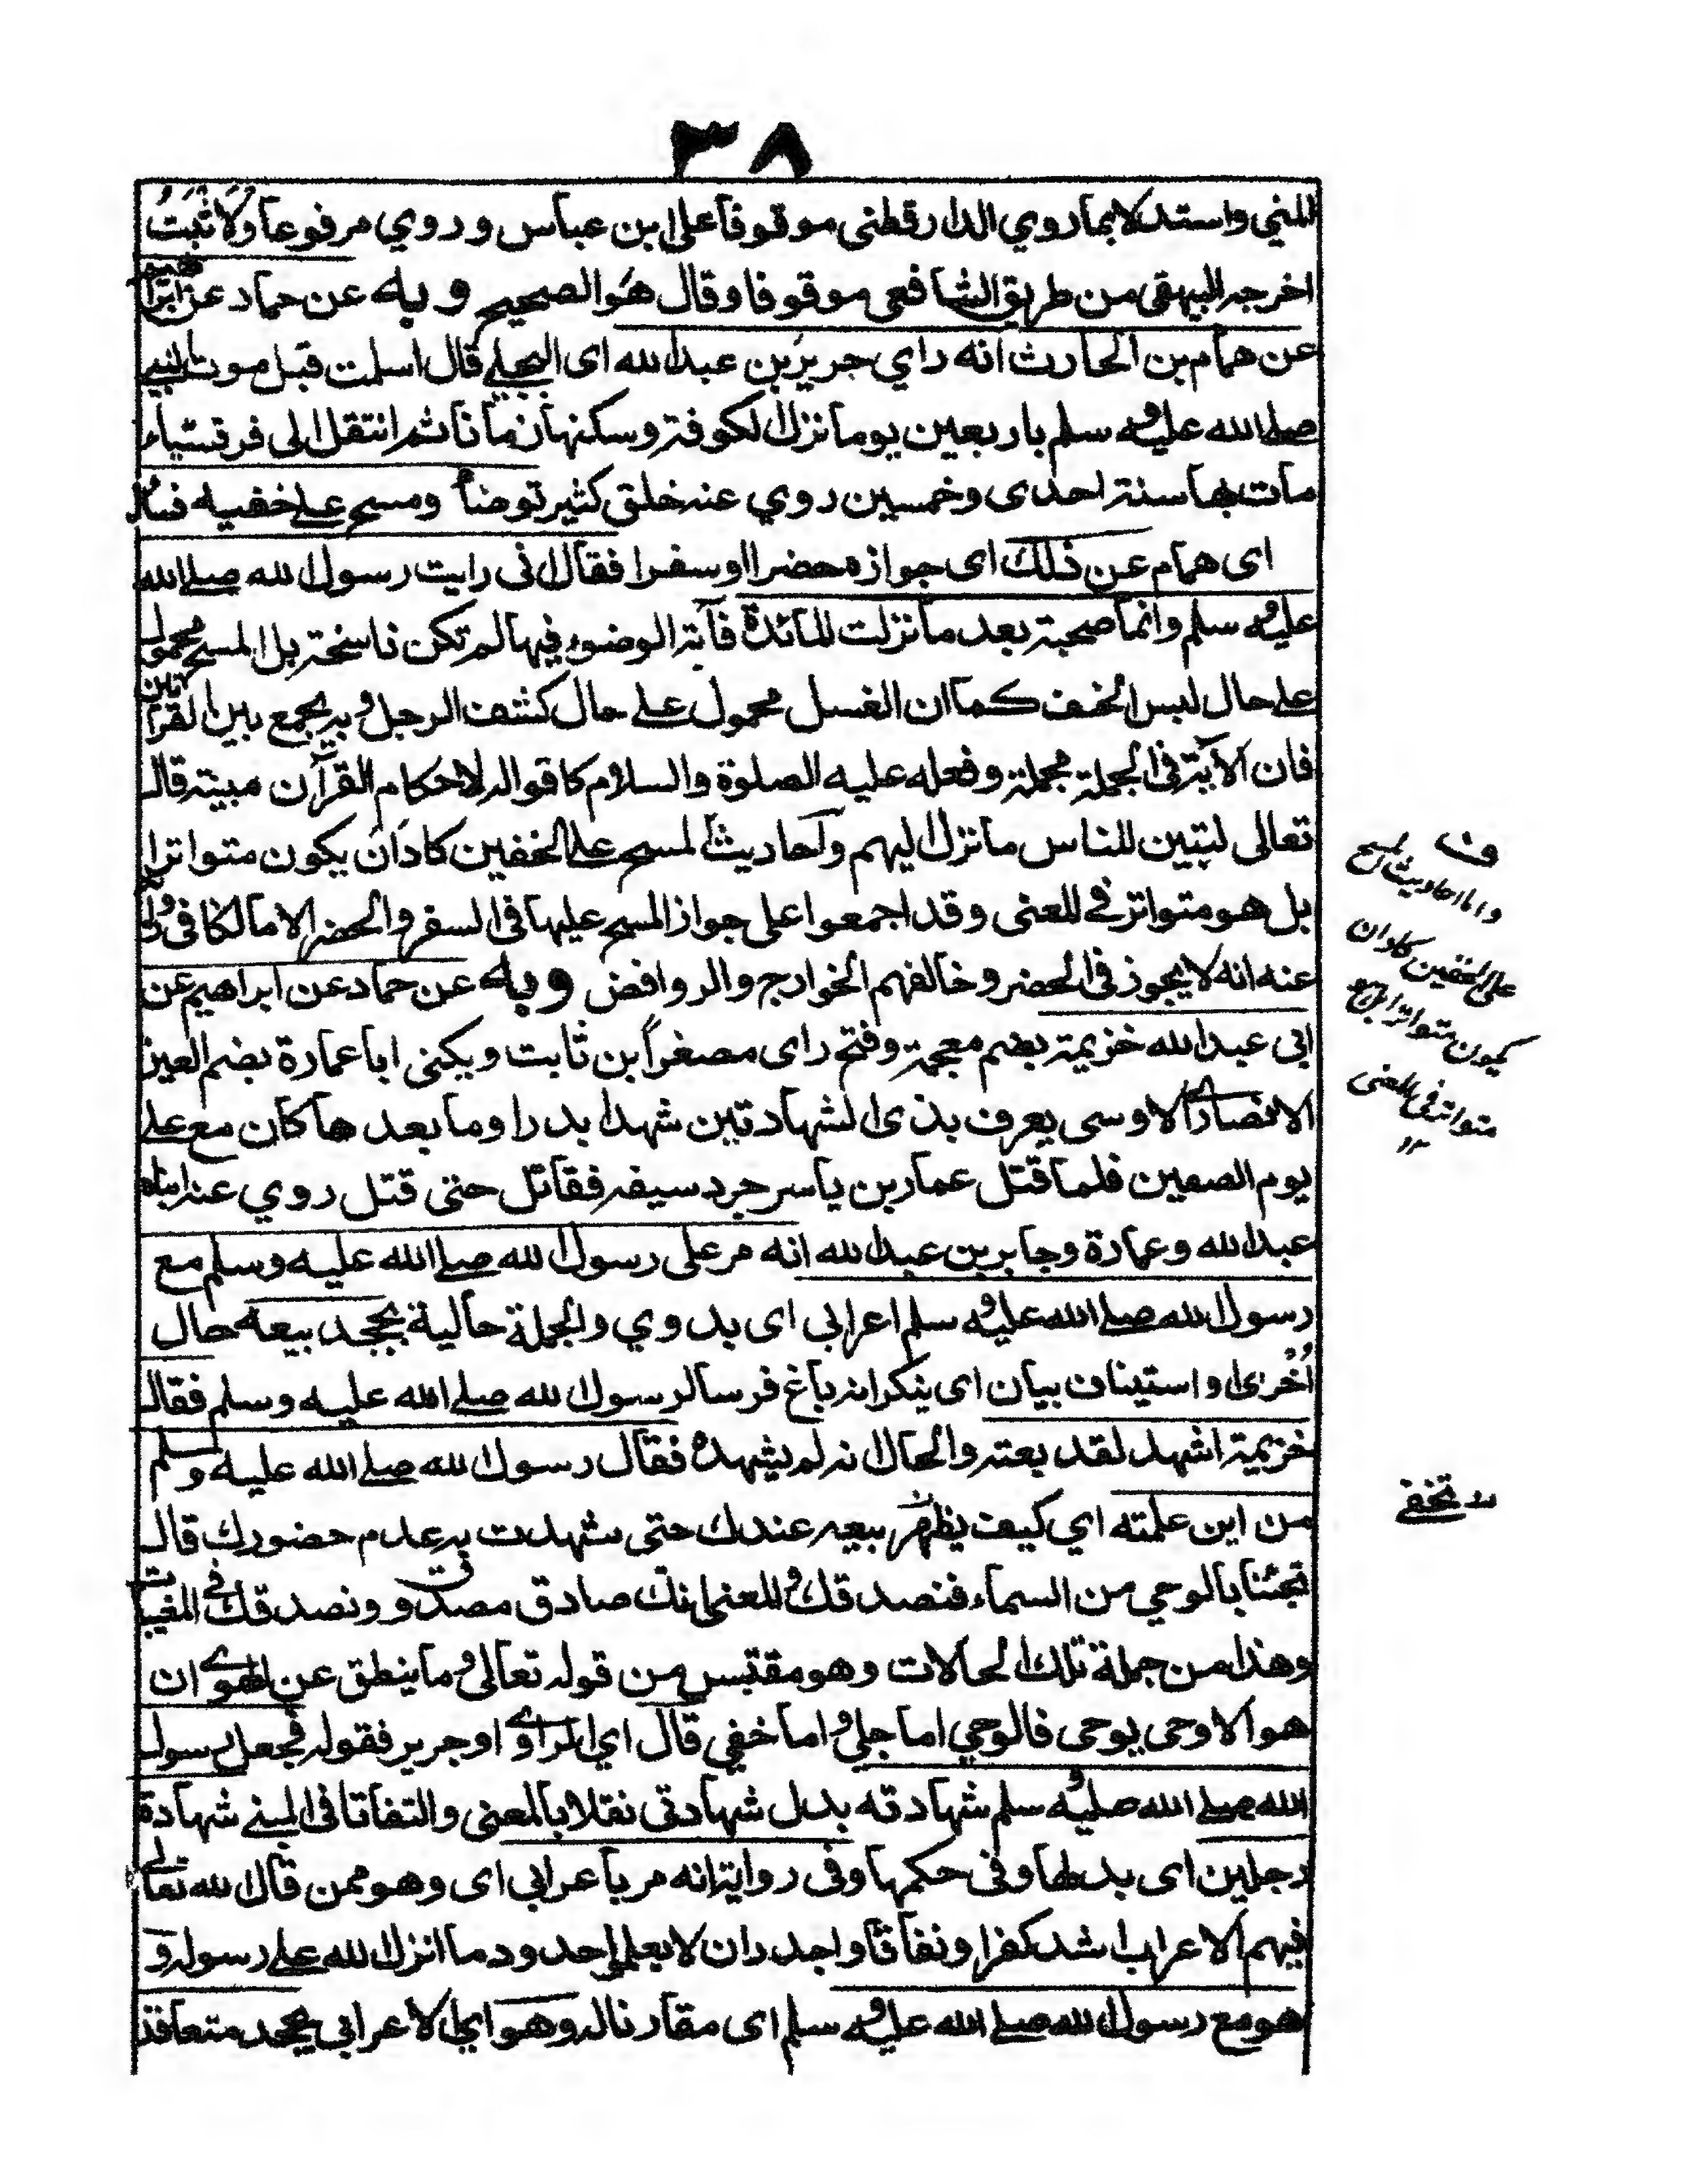 ٣٨
المني واستدلا بما روي الدار قطنى موقوفا على ابن عباس وروي مرفوعا ولا ثبت
اخرجه البيهقى من طريق الشافعى موقوفا وقال هو الصحيح وبه عن حماد عن ابراهيم
عن همام بن الحارث انه راي جرير بن عبد الله اى البجلي قال اسلمت قبل موت النبي
صلى الله عليه وسلم باربعين يوما نزل الكوفة وسكنها زمانا ثم انتقل الى قرقيسياء
مات بها سنة احدى وخمسين روي عنه خلق كثير توضأ ومسح على خفيه فسأل
اى همام عن ذلك اى جوازه حضرا او سفرا فقال انى رايت رسول الله صلى الله
عليه وسلم وانما صحبته بعد ما نزلت المائدة فآية الوضوء فيها لم تكن ناسخة بل المسح محمول
على حال لبس الخف كما ان الغسل محمول على حال كشف الرجل وبه يجمع بين القراءتين
فان الآية فى الجملة مجملة وفعله عليه الصلوة والسلام كاقواله لاحكام القرآن مبينة قال
تعالى لتبين للناس ما نزل اليهم وآحاديث المسح على الخفين كاد ان يكون متواترا
بل هو متواتر في المعنى وقد اجمعوا على جواز المسح عليها فى السفر والحضر الا مالكا فى رواية
عنه انه لا يجوز فى الحضر وخالفهم الخوارج والروافض وبه عن حماد عن ابراهيم عن
ابى عبد الله خزيمة بضم معجمة وفتح زاى مصغرا بن ثابت ويكنى ابا عمارة بضم العين
الانصاري الاوسى يعرف بذى الشهادتين شهد بدرا وما بعدها كان مع على
يوم الصفين فلما قتل عمار بن ياسر جرد سيفه فقاتل حتى قتل روي عنه ابناه
عبد الله وعمارة وجابر بن عبد الله انه مر على رسول الله صلى الله عليه وسلم مع
رسول الله صلى الله عليه وسلم اعرابى اى بدوي والجملة حالية يجحد بيعه حال
أخرى او استيناف بيان اى ينكر انه باغ فرسا لرسول الله صلى الله عليه وسلم فقال
خزيمة اشهد لقد بعته والحال انه لم يشهده فقال رسول الله صلى الله عليه وسلم
من اين علمته اي كيف يظهر بيعه عندك حتى شهدت به عدم حضورك قال
تجئنا بالوحي من السماء فنصدقك والمعنى انك صادق مصدوق ونصدقك فى المغيبات
وهذا من جملة تلك الحالات وهو مقتبس من قوله تعالى وما ينطق عن الهوى ان
هو الا وحى يوحى فالوحي اما جلى واما خفي قال اي الراوي او جرير فقوله فجعل رسول
الله صلى الله عليه وسلم شهادته بدل شهادتى نقلا بالمعنى والتفاتا فى المبنى شهادة
رجلين اى بدلها وفى حكمها وفى رواية انه مر باعرابى اى وهو ممن قال الله تعالى
فيهم الاعراب اشد كفرا ونفاقا واجدر ان لا يعلموا حدود ما انزل الله على رسوله و
هو مع رسول الله صلى الله عليه وسلم اى مقارنا له وهو اى الاعرابى يجحد متعاقد
ف
واما احاديث المسح
على الخفين كادان
يكون متواترا بل هو
متواتر فى المعنى
١٢
تخفى